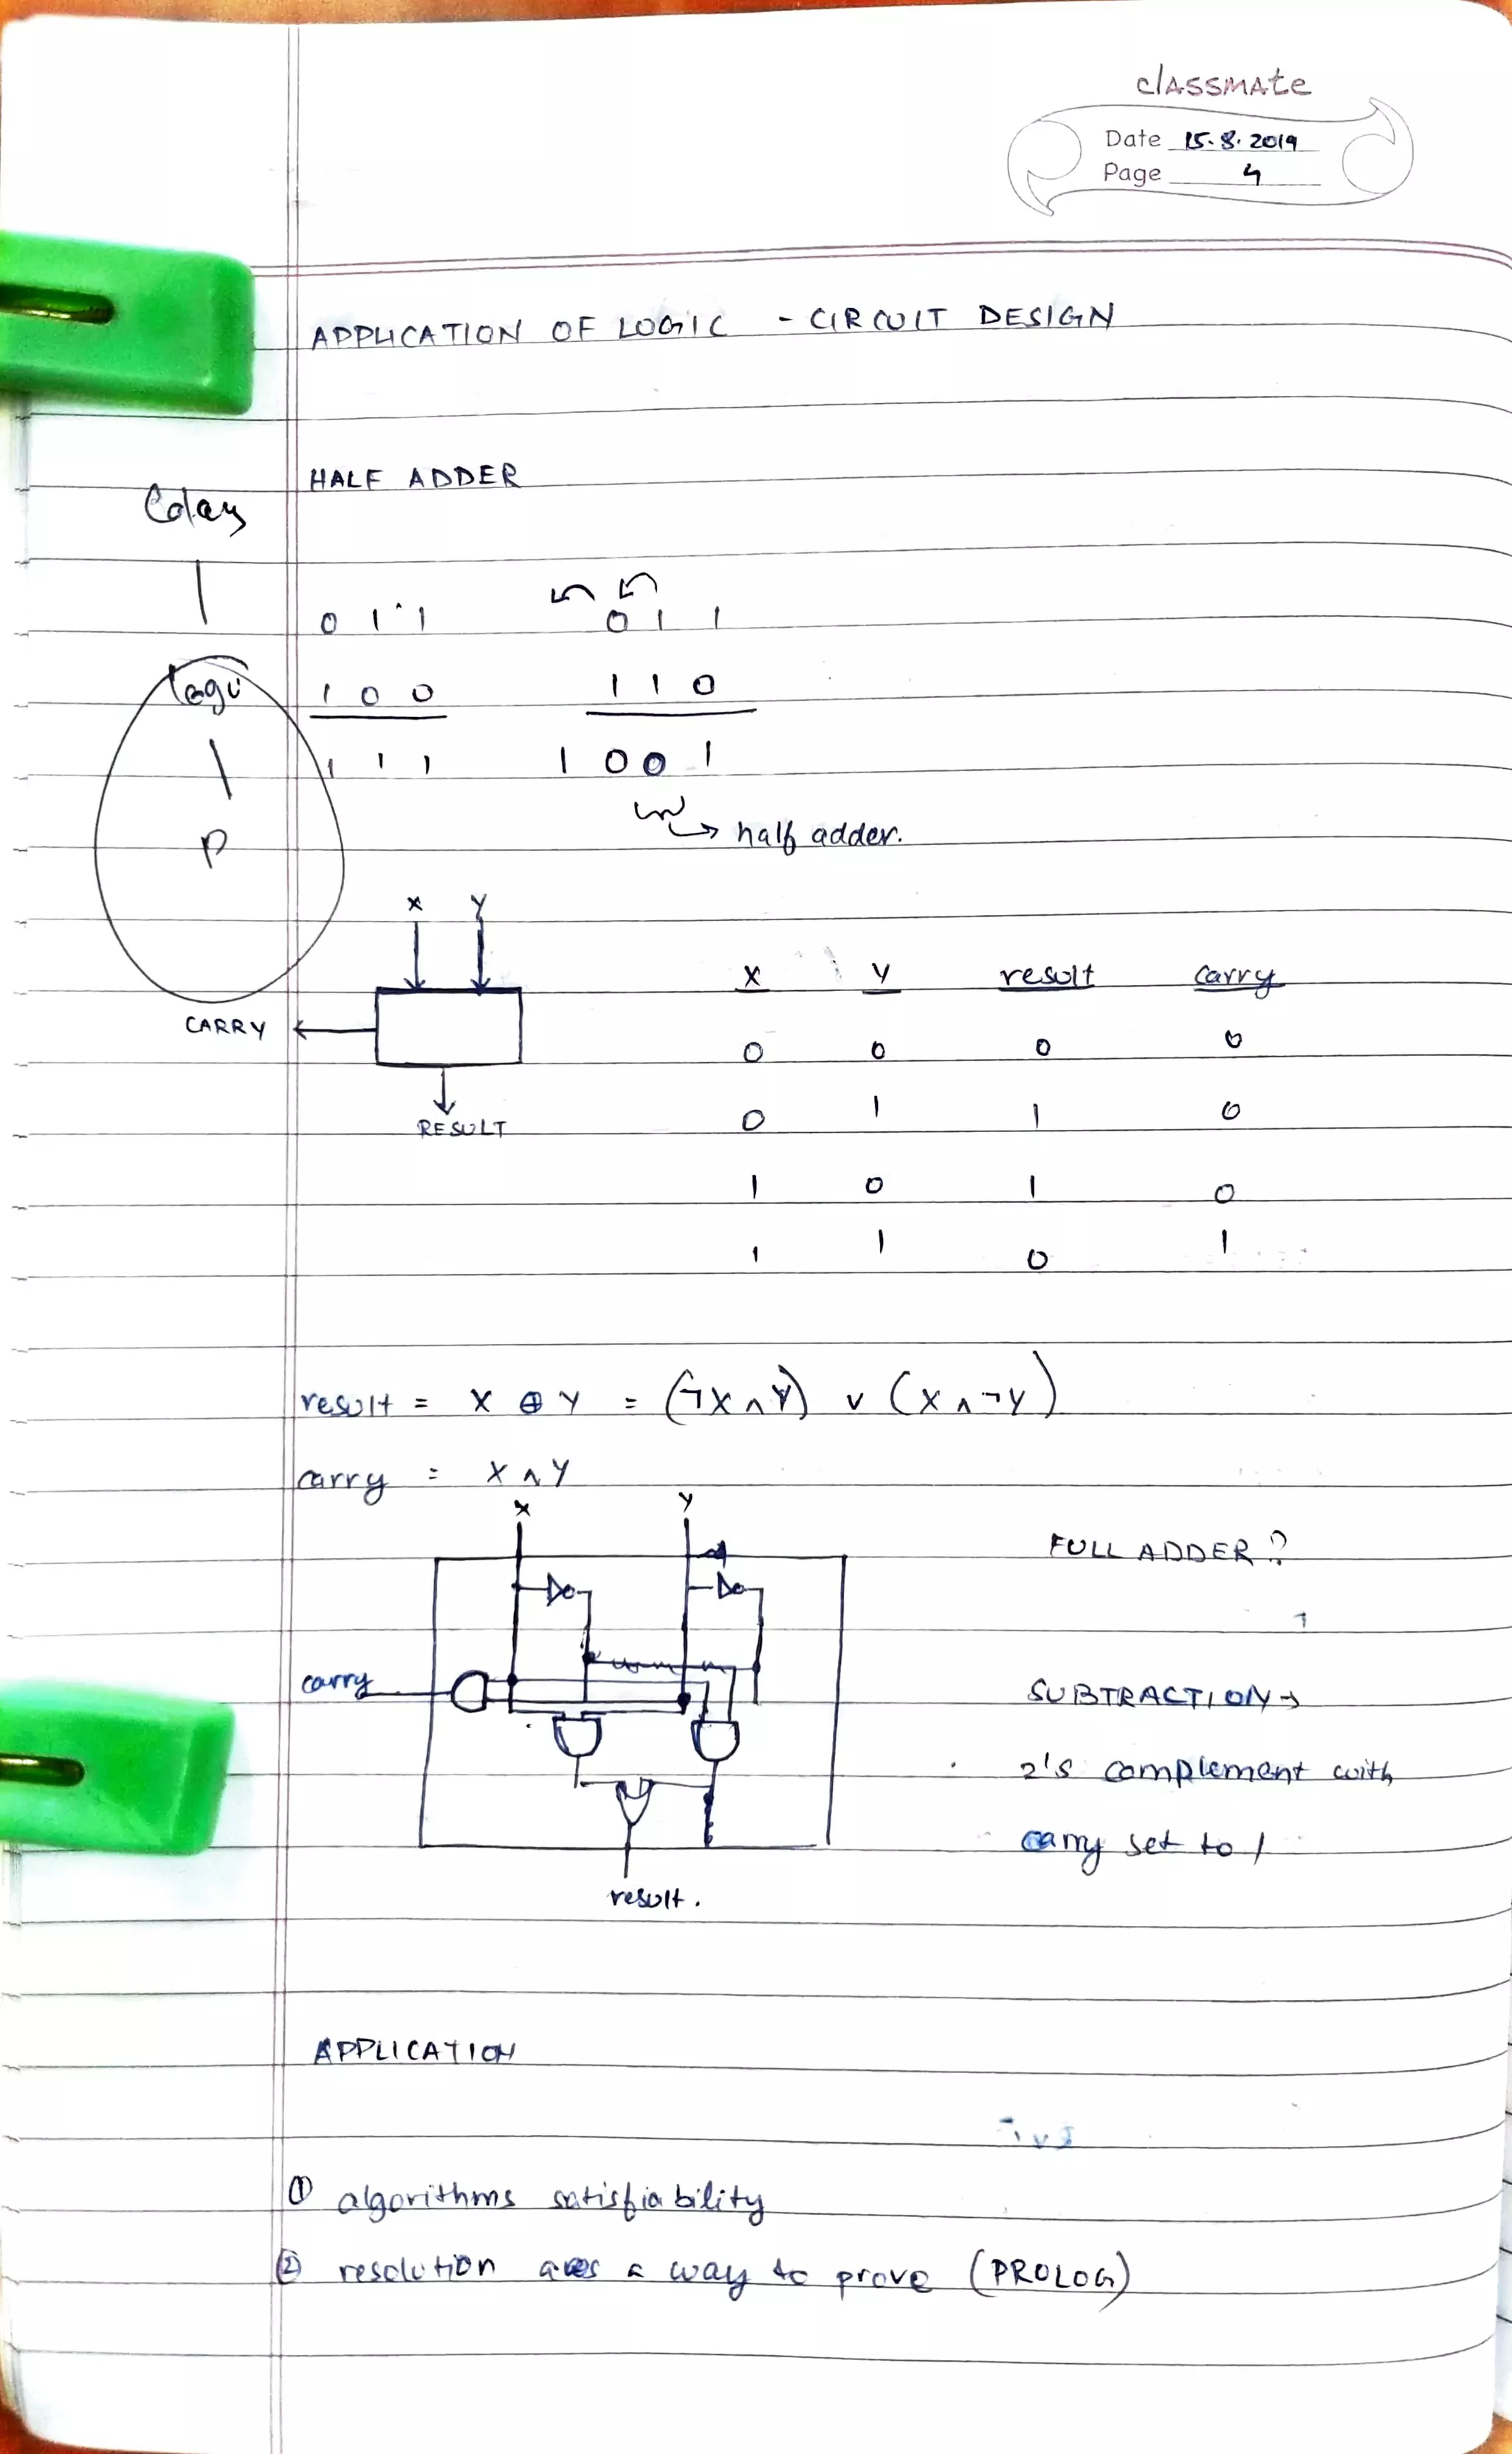 classmate
Date 15.8.2019
Page 4
APPLICATION OF LOGIC - CIRCUIT DESIGN
HALF ADDER
0 1 1 0 1 1
1 0 0 1 1 0
1 1 1 1 0 0 1
P
→ half adder.
X Y
CARRY
RESULT
X Y result carry
0 0 0 0
0 1 1 0
1 0 1 0
1 1 0 1
result = X ⊕ Y = (¬X ∧ Y) ∨ (X ∧ ¬Y)
carry = X ∧ Y
X Y
FULL ADDER ?
carry
SUBTRACTION →
2's complement with
carry set to 1
result.
APPLICATION
① algorithms satisfiability
② resolution as a way to prove (PROLOG)